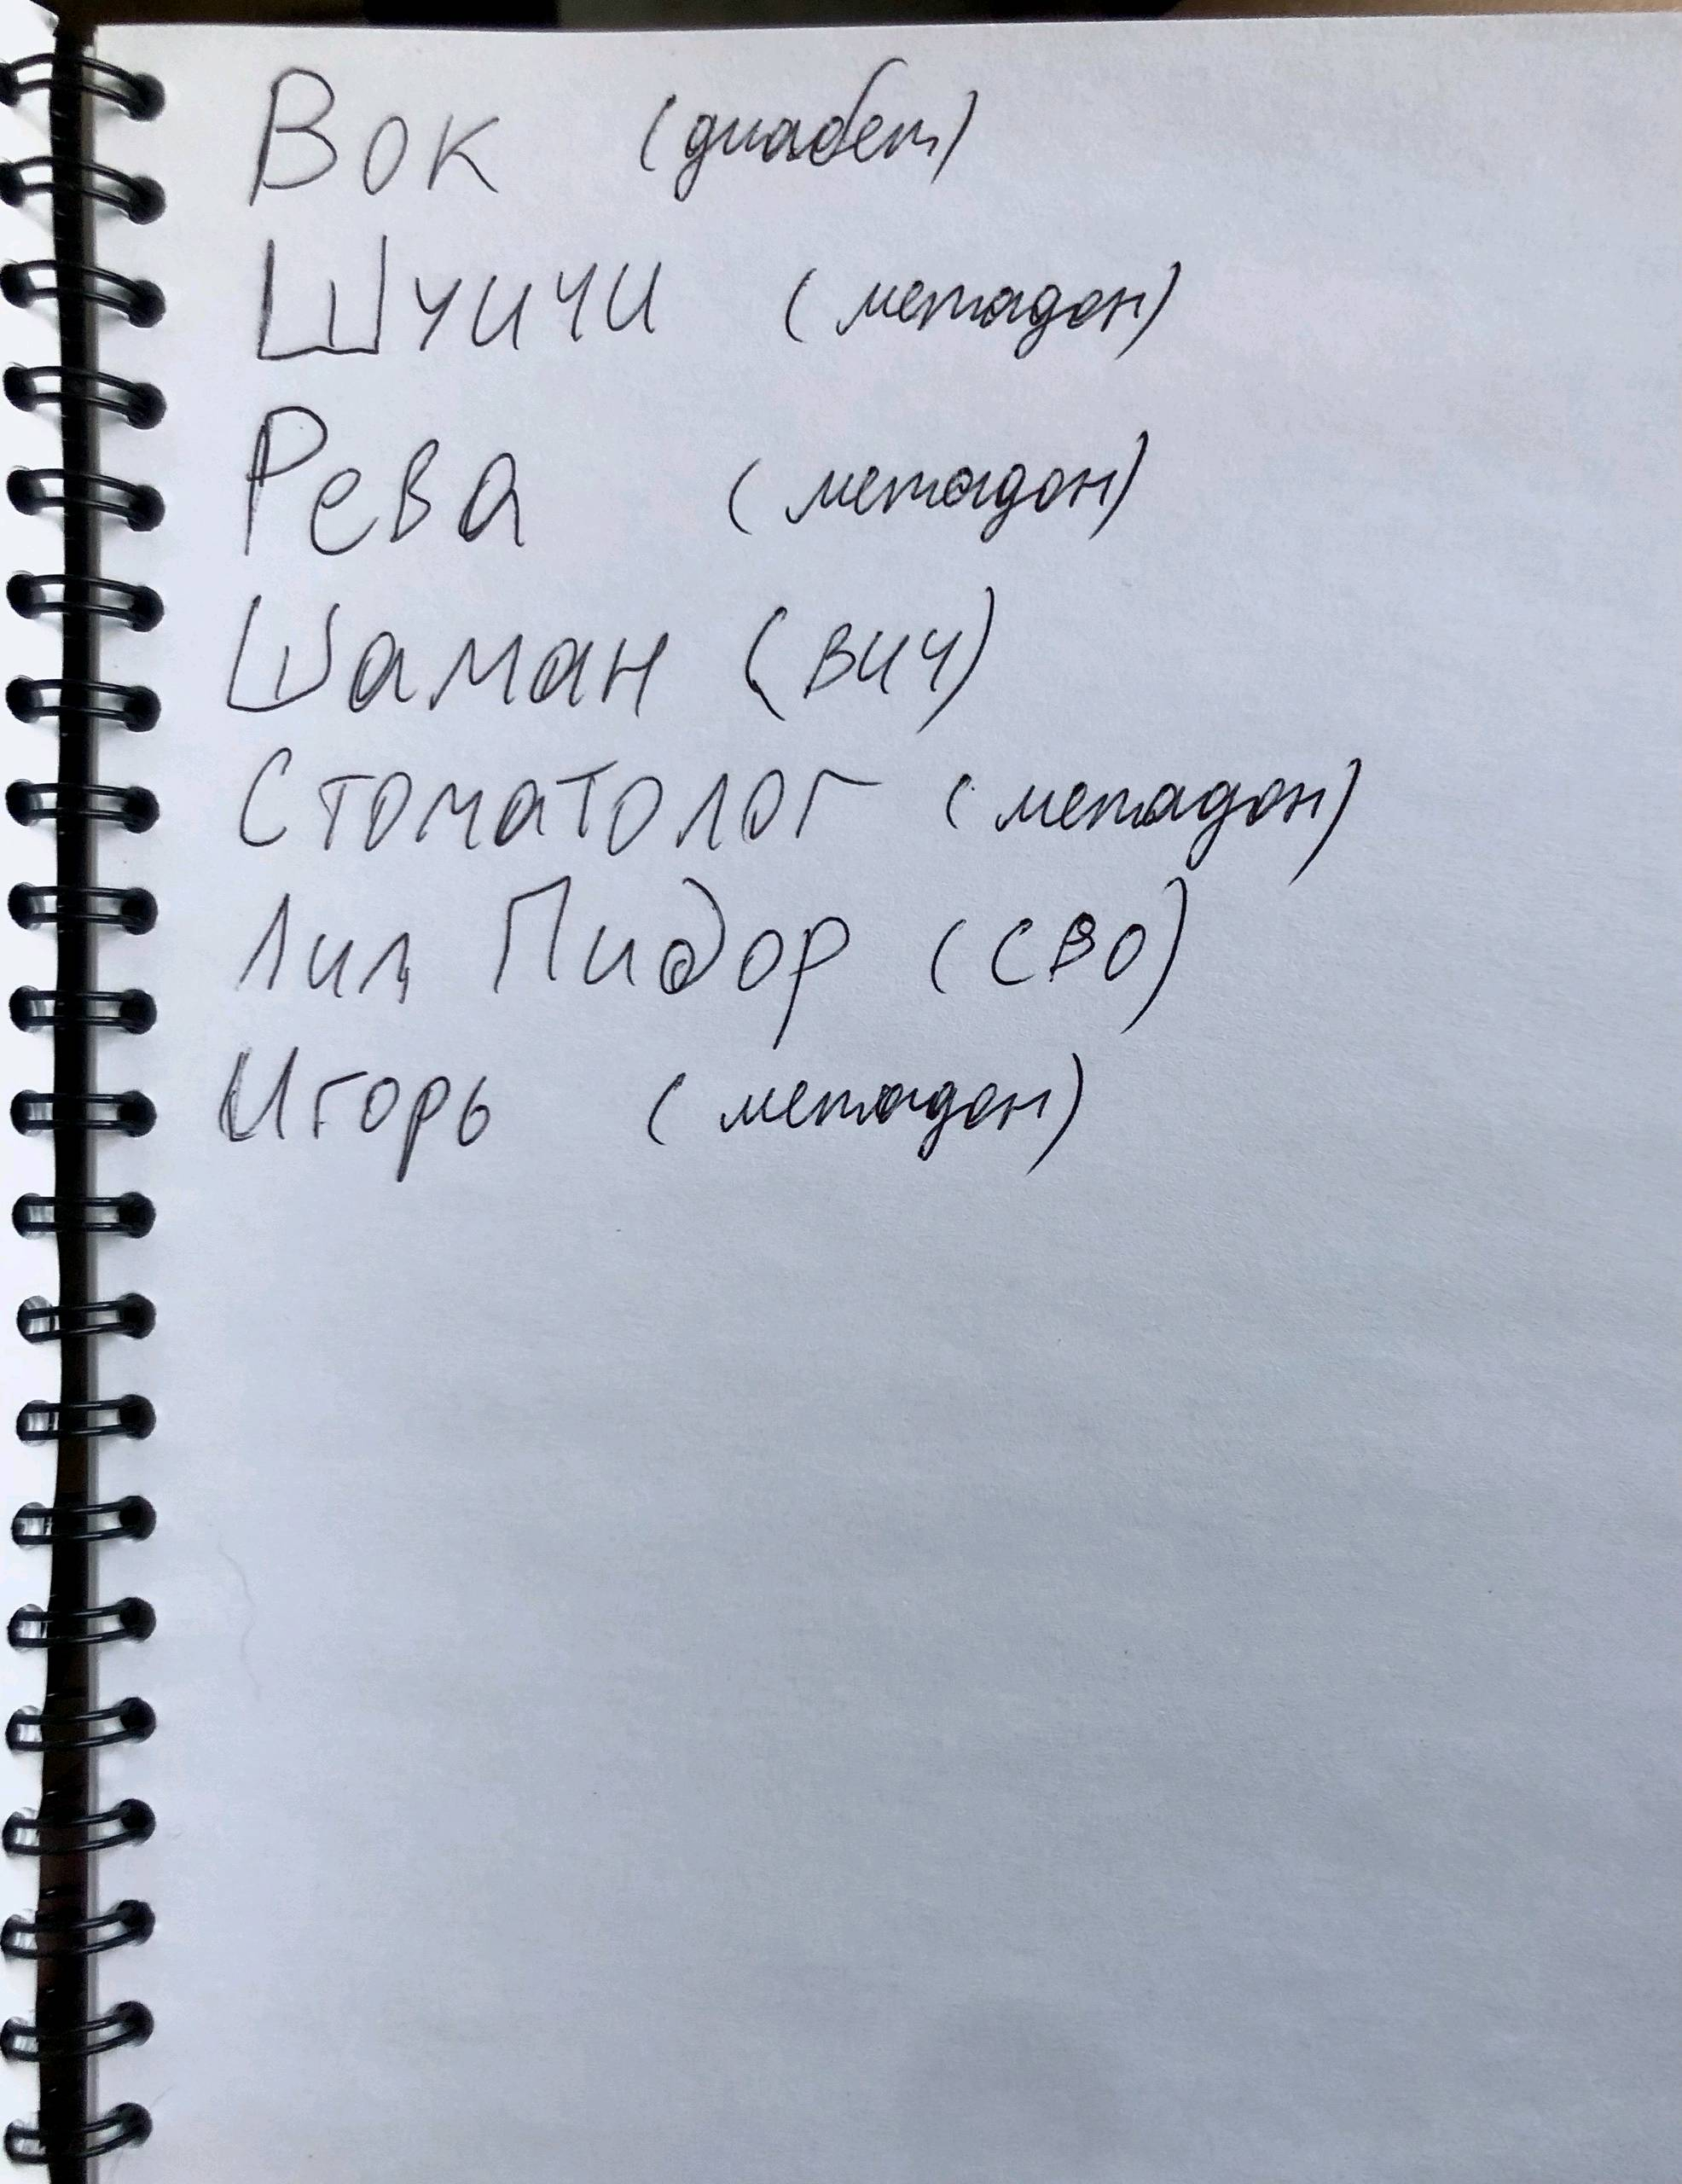 Вок (диабет)
Шуичи (метадон)
Рева (метадон)
Шаман (вич)
Стоматолог (метадон)
Лил Пидор (СВО)
Игорь (метадон)